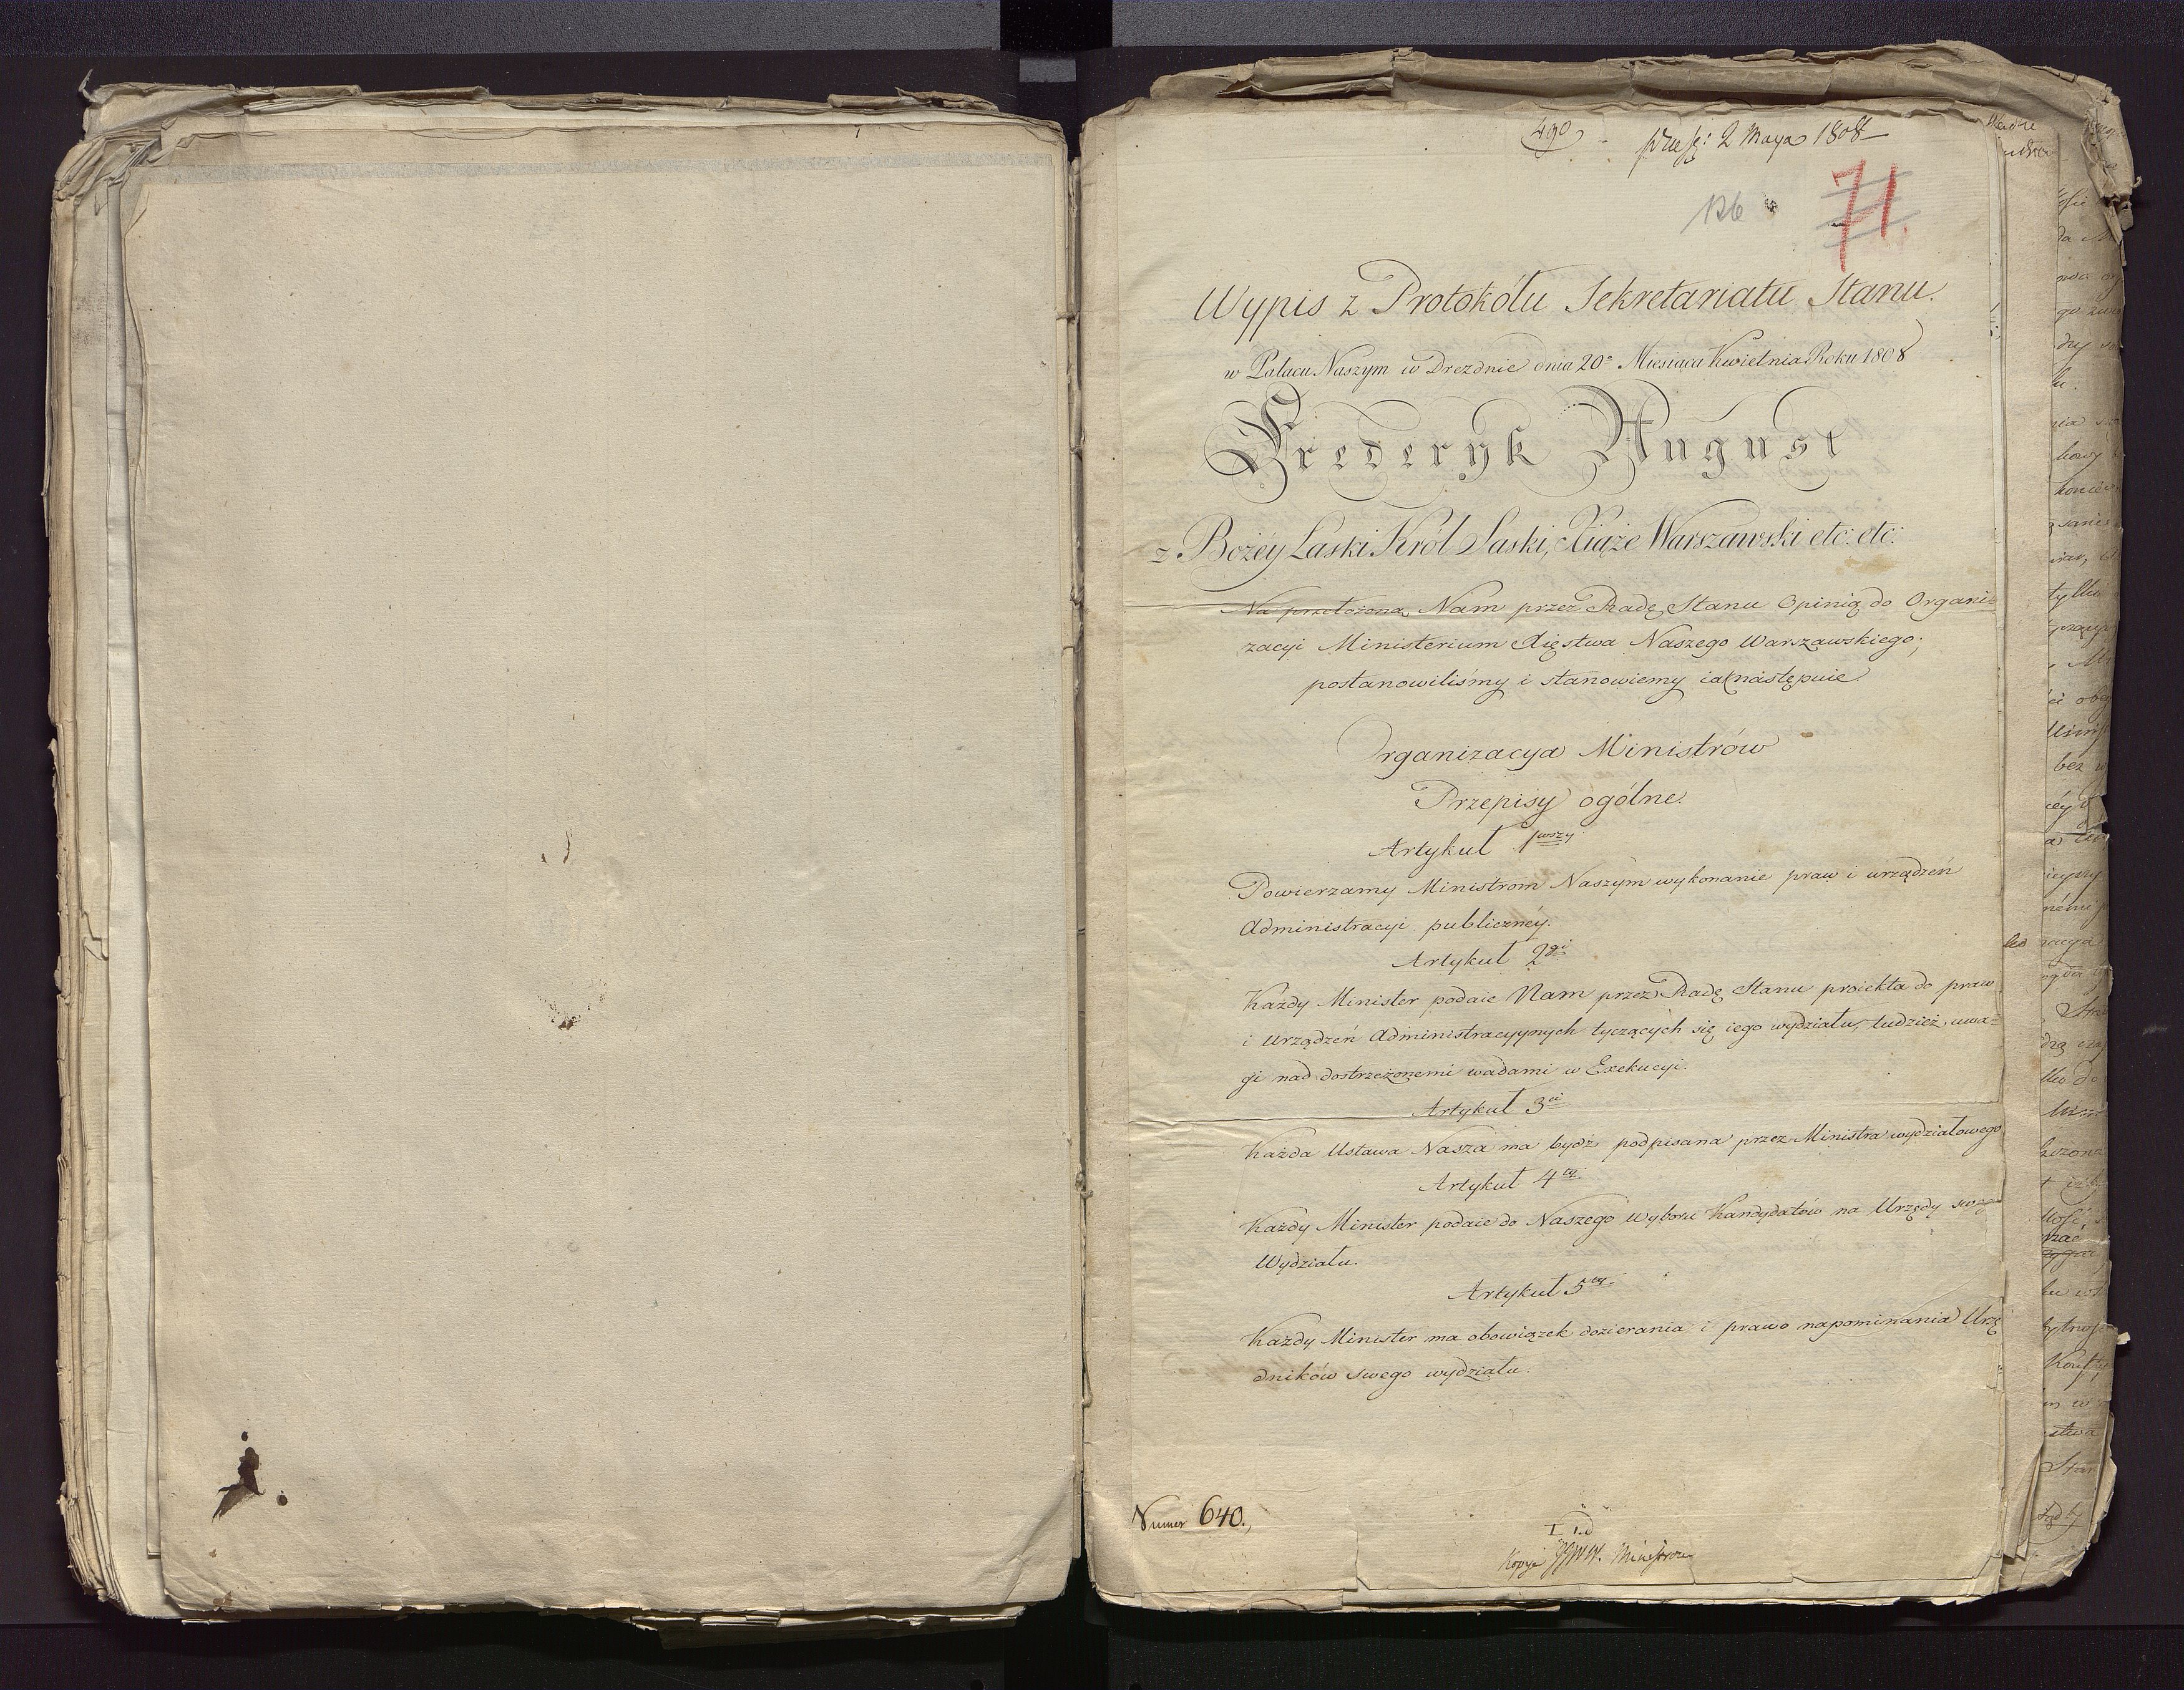 490
2 Maya 1808
126
71
Wypis z Protokółu Sekretariatu Stanu.
w Pałacu Naszym w Dreznie dnia 20º Miesiąca Kwietnia Roku 1808
Frederyk August
z Bożéy Łaski Król Saski, Xiąże Warszawski etc: etc:
Na przełożoną Nam przez Radę Stanu Opinią do Organi-
zacyi Ministerium Xięstwa Naszego Warszawskiego;
postanowiliśmy i stanowiemy iak następuie
Organizacya Ministrów
Przepisy ogólne.
Artykuł 1wszy
Powierzamy Ministrom Naszym wykonanie praw i urządzeń
Administracyi publicznéy.
Artykuł 2gi
Każdy Minister podaie Nam przez Radę Stanu proiekta do praw
i Urządzeń Administracyynych tyczących się iego wydziału, tudzież uwa-
gi nad dostrzeżonemi wadami w Exekucyi.
Artykuł 3ci
Każda Ustawa Nasza ma bydź podpisana przez Ministra wydziałowego
Artykuł 4ty
Każdy Minister podaie do Naszego wyboru Kandydatów na Urzędy swego
Wydziału.
Artykuł 5ty
Każdy Minister ma obowiązek dozierania i prawo napominania Urzę
dników swego wydziału.
Numer 640.